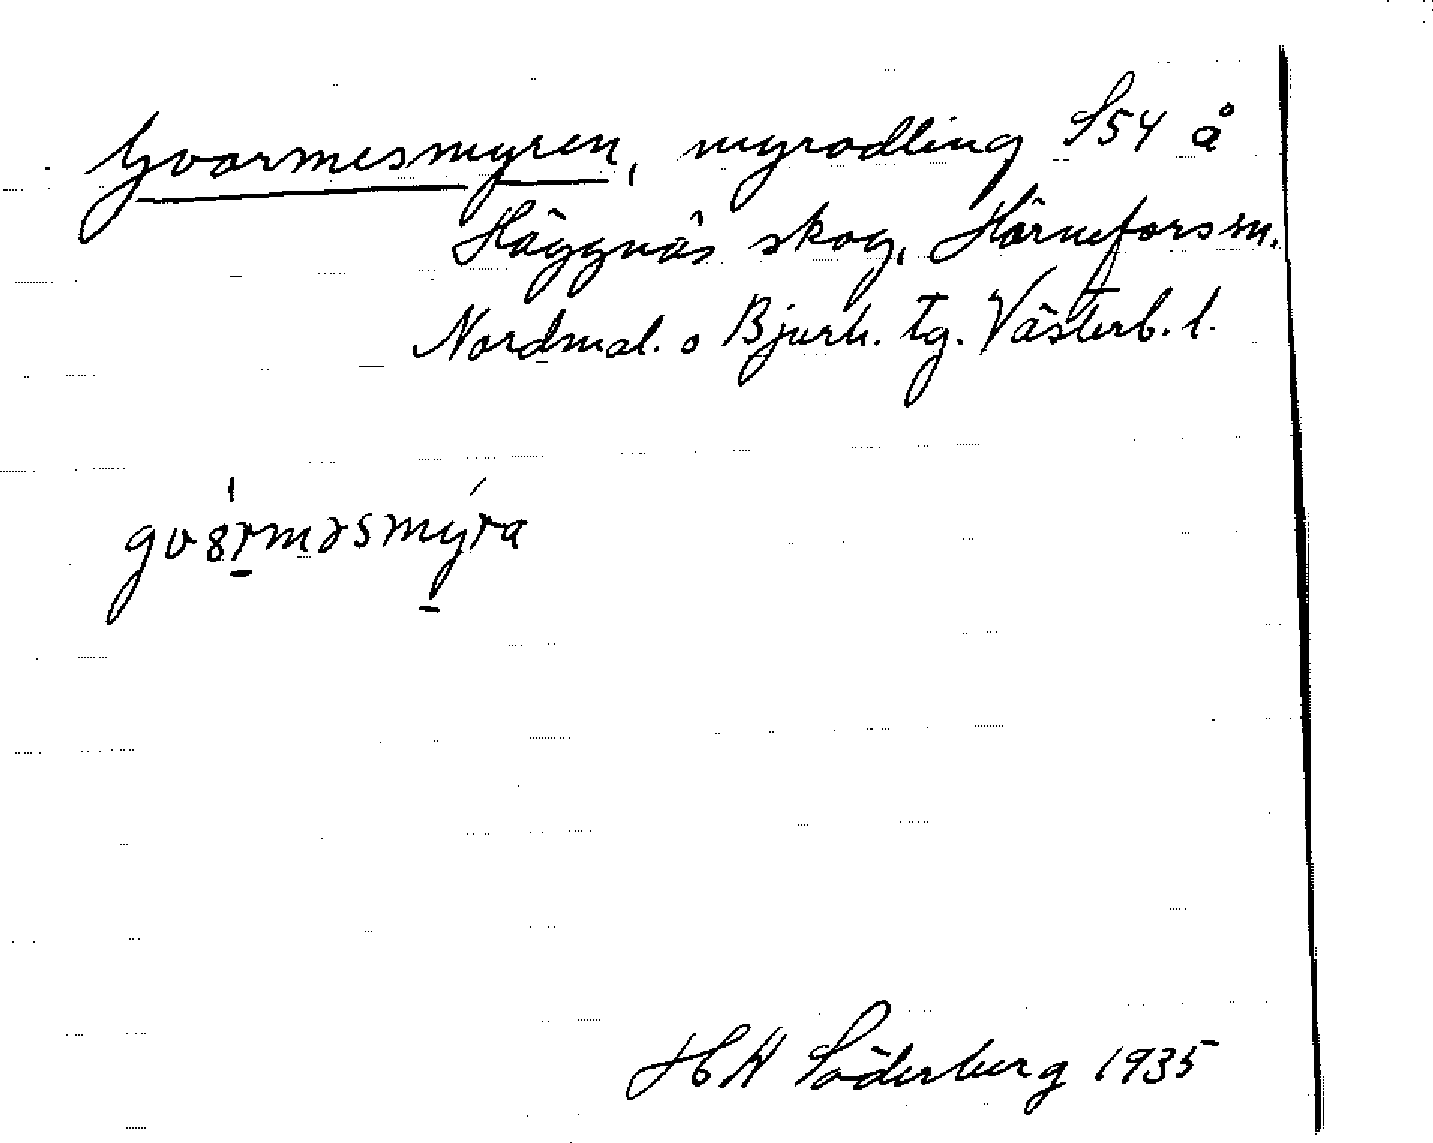 Gvarmesmyren, myrodling S54 å
Häggnäs skog, Hörnefors sn.
Nordmal. o Bjurh. tg. Västerb. l.
gvärməsmýra
H Söderberg 1935